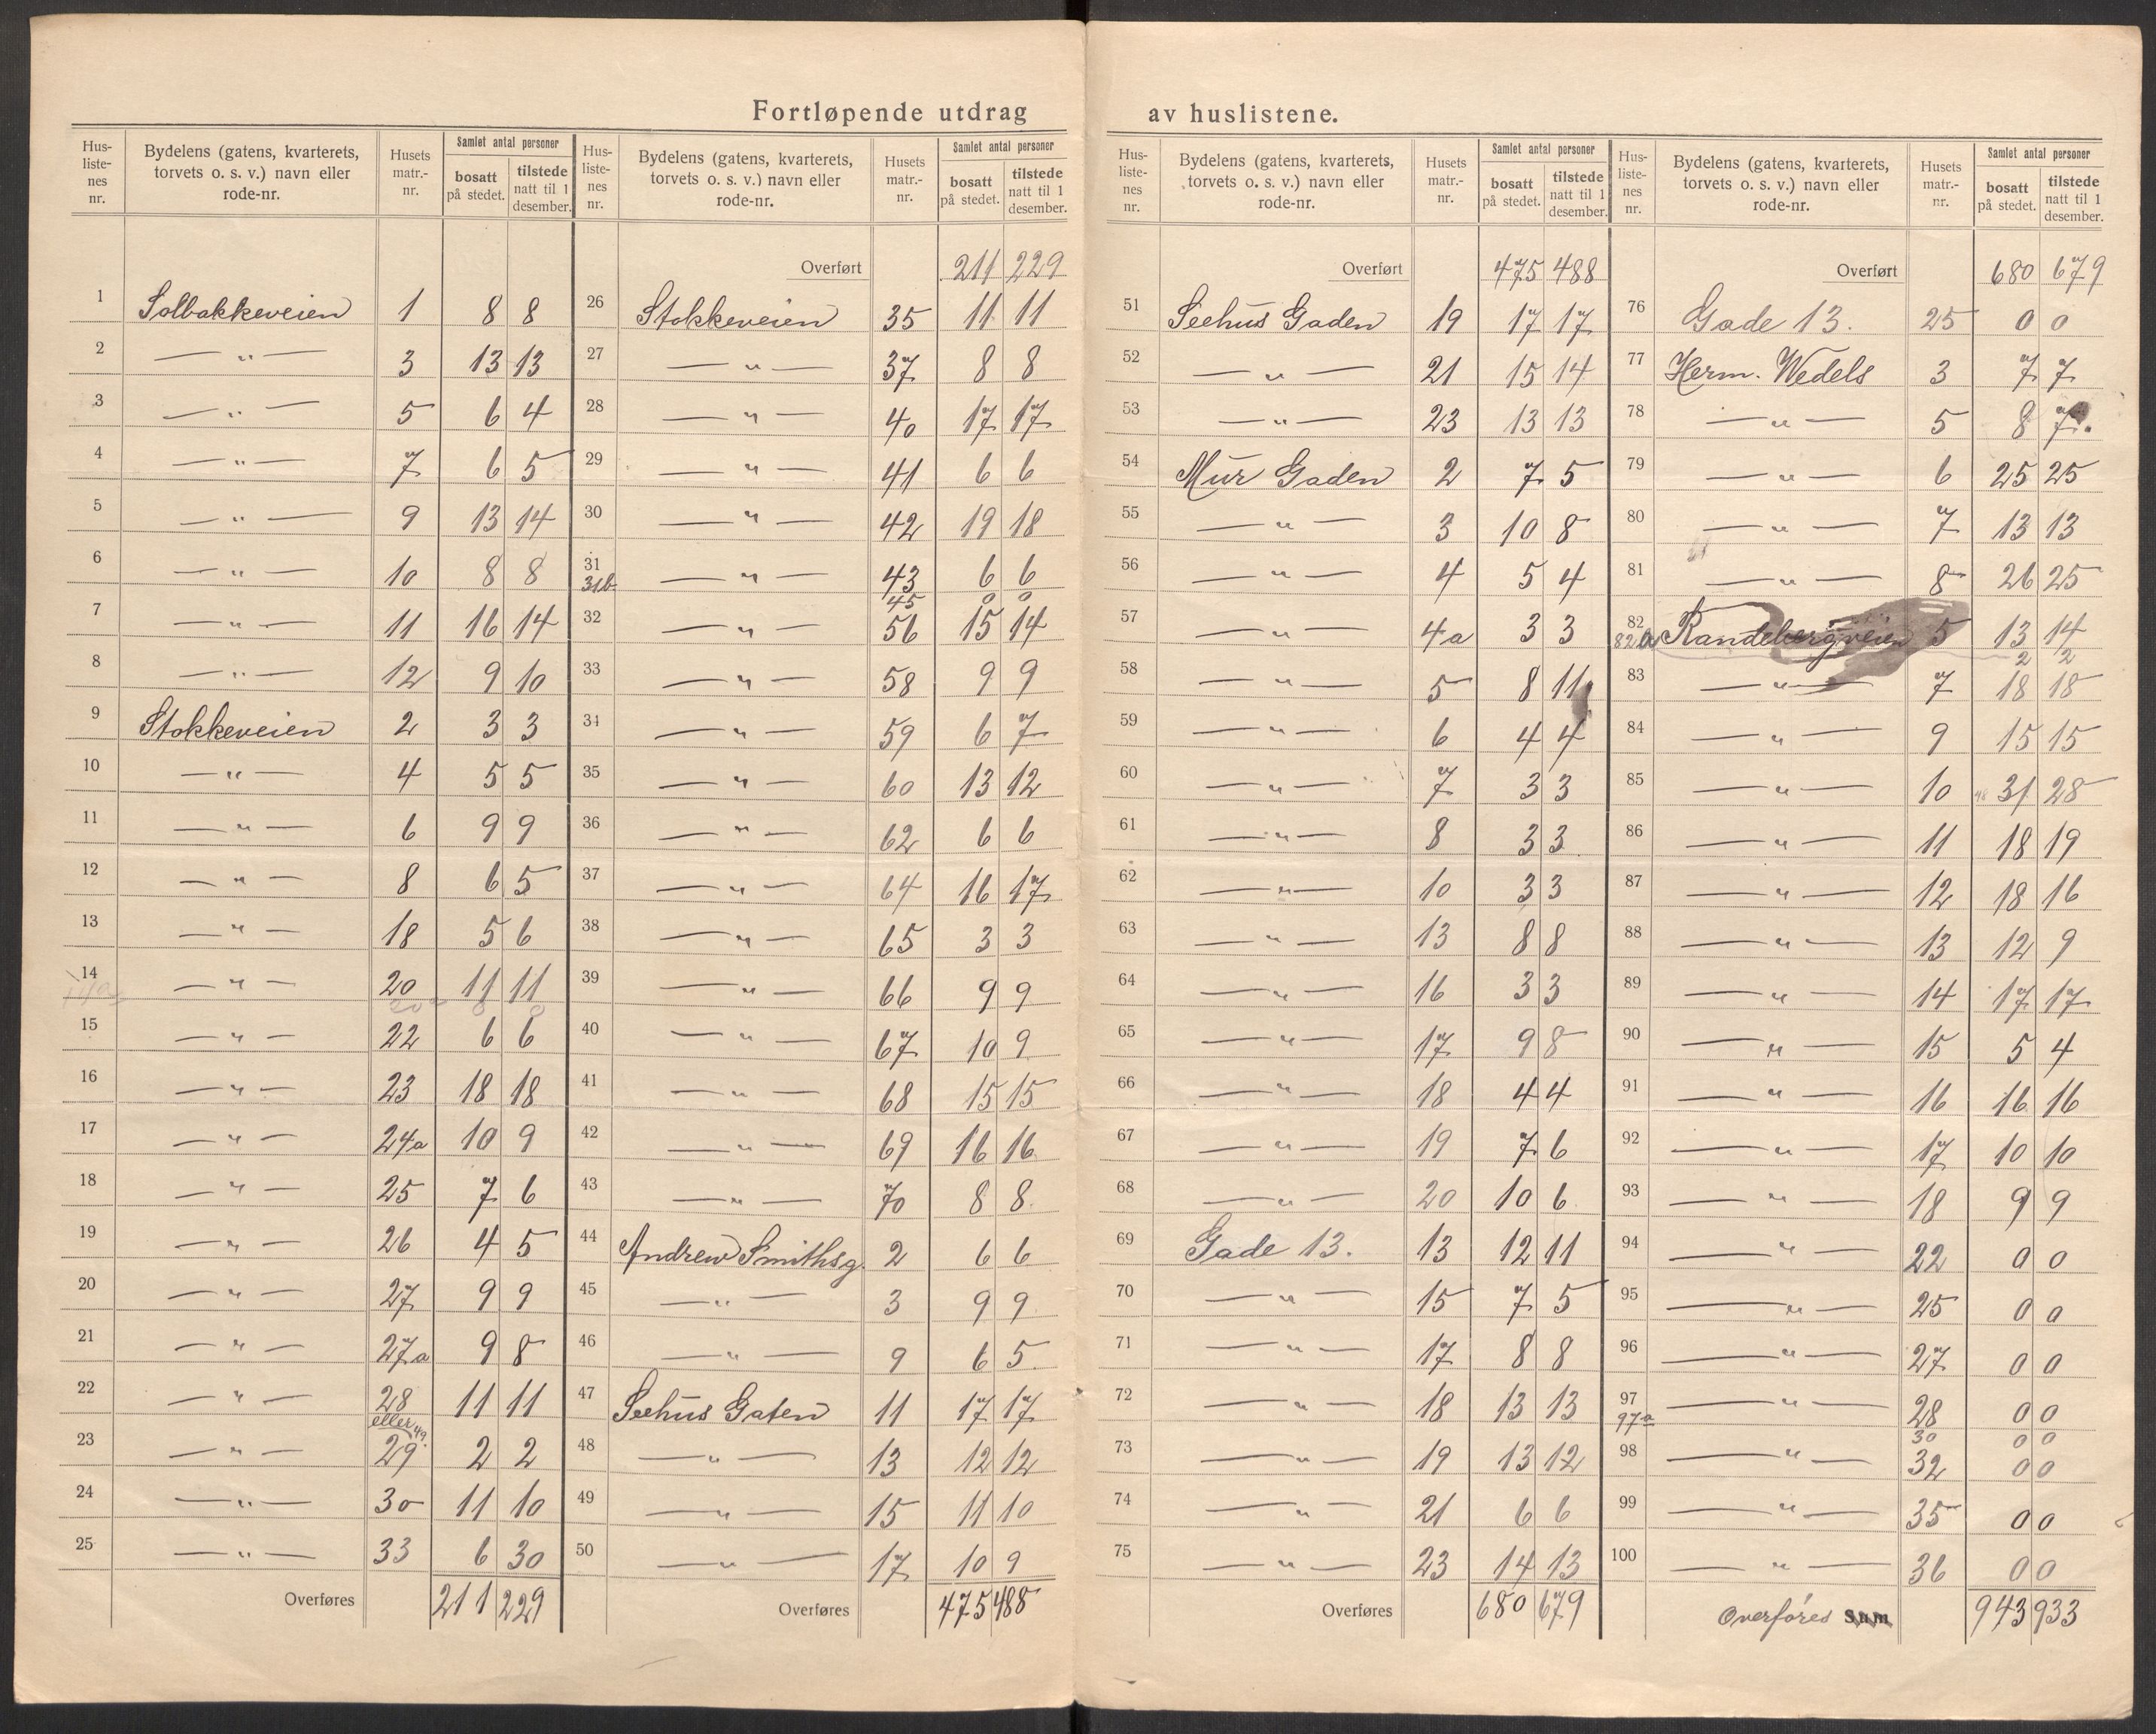 Fortløpende utdrag av huslistene.
Hus-liste-nes nr. Bydelens (gatens, kvarterets, torvets o. s. v.) navn eller rode-nr. Husets matr.-nr. Samlet antal personer bosatt på stedet. tilstede natt til 1 desember.
1 Solbakkeveien 1 8 8
2 — „ — 3 13 13
3 — „ — 5 6 4
4 — „ — 7 6 5
5 — „ — 9 13 14
6 — „ — 10 8 8
7 — „ — 11 16 14
8 — „ — 12 9 10
9 Stokkeveien 2 3 3
10 — „ — 4 5 5
11 — „ — 6 9 9
12 — „ — 8 6 5
13 — „ — 18 5 6
14 — „ — 20 11 11
15 — „ — 22 6 6
16 — „ — 23 18 18
17 — „ — 24a 10 9
18 — „ — 25 7 6
19 — „ — 26 4 5
20 — „ — 27 9 9
21 — „ — 27a 9 8
22 — „ — 28 11 11
eller 49.
23 — „ — 29 2 2
24 — „ — 30 11 10
25 — „ — 33 6 30
Overføres 211 229
Hus-liste-nes nr. Bydelens (gatens, kvarterets, torvets o. s. v.) navn eller rode-nr. Husets matr.-nr. Samlet antal personer bosatt på stedet. tilstede natt til 1 desember.
Overført 211 229
26 Stokkeveien 35 11 11
27 — „ — 37 8 8
28 — „ — 40 17 17
29 — „ — 41 6 6
30 — „ — 42 19 18
31 — „ — 43 6 6
31b 45 0 0
32 — „ — 56 15 14
33 — „ — 58 9 9
34 — „ — 59 6 7
35 — „ — 60 13 12
36 — „ — 62 6 6
37 — „ — 64 16 17
38 — „ — 65 3 3
39 — „ — 66 9 9
40 — „ — 67 10 9
41 — „ — 68 15 15
42 — „ — 69 16 16
43 — „ — 70 8 8
44 Andrew Smithsg. 2 6 6
45 — „ — 3 9 9
46 — „ — 9 6 5
47 Seehus Gaten 11 17 17
48 — „ — 13 12 12
49 — „ — 15 11 10
50 — „ — 17 10 9
Overføres 475 488
Hus-liste-nes nr. Bydelens (gatens, kvarterets, torvets o. s. v.) navn eller rode-nr. Husets matr.-nr. Samlet antal personer bosatt på stedet. tilstede natt til 1 desember.
Overført 475 488
51 Seehus Gaden 19 17 17
52 — „ — 21 15 14
53 — „ — 23 13 13
54 Mur Gaden 2 7 5
55 — „ — 3 10 8
56 — „ — 4 5 4
57 — „ — 4a 3 3
58 — „ — 5 8 11
59 — „ — 6 4 4
60 — „ — 7 3 3
61 — „ — 8 3 3
62 — „ — 10 3 3
63 — „ — 13 8 8
64 — „ — 16 3 3
65 — „ — 17 9 8
66 — „ — 18 4 4
67 — „ — 19 7 6
68 — „ — 20 10 6
69 Gade 13. 13 12 11
70 — „ — 15 7 5
71 — „ — 17 8 8
72 — „ — 18 13 13
73 — „ — 19 13 12
74 — „ — 21 6 6
75 — „ — 23 14 13
Overføres 680 679
Hus-liste-nes nr. Bydelens (gatens, kvarterets, torvets o. s. v.) navn eller rode-nr. Husets matr.-nr. Samlet antal personer bosatt på stedet. tilstede natt til 1 desember.
Overført 680 679
76 Gade 13. 25 0 0
77 Herm. Wedels 3 7 7
78 — „ — 5 8 7
79 — „ — 6 25 25
80 — „ — 7 13 13
81 — „ — 8 26 25
82 Randebergveien 5 13 14
82b 2 2
83 — „ — 7 18 18
84 — „ — 9 15 15
85 — „ — 10 31 28
86 — „ — 11 18 19
87 — „ — 12 18 16
88 — „ — 13 12 9
89 — „ — 14 17 17
90 — „ — 15 5 4
91 — „ — 16 16 16
92 — „ — 17 10 10
93 — „ — 18 9 9
94 — „ — 22 0 0
95 — „ — 25 0 0
96 — „ — 27 0 0
97 — „ — 28 0 0
97a 30 0 0
98 — „ — 32 0 0
99 — „ — 35 0 0
100 — „ — 36 0 0
Overføres Sum 943 933